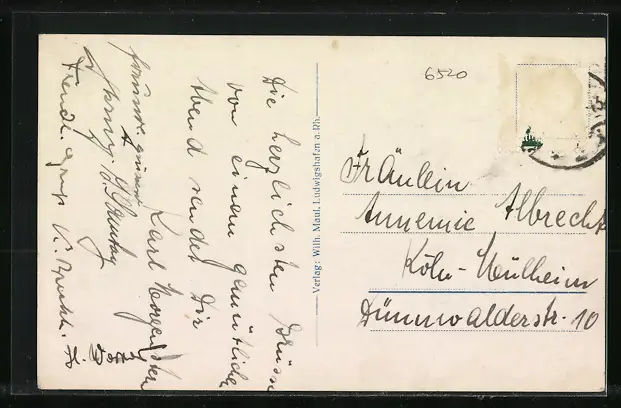 6520
Die herzlichsten Grüsse
von einem gemütlichen
Abend sendet Dir
Karl
Freundl. Gruss
Verlag: Wilh. Maul, Ludwigshafen a. Rh.
Fräulein
Annemie Albrecht
Köln-Mülheim
Dünnwalderstr. 10